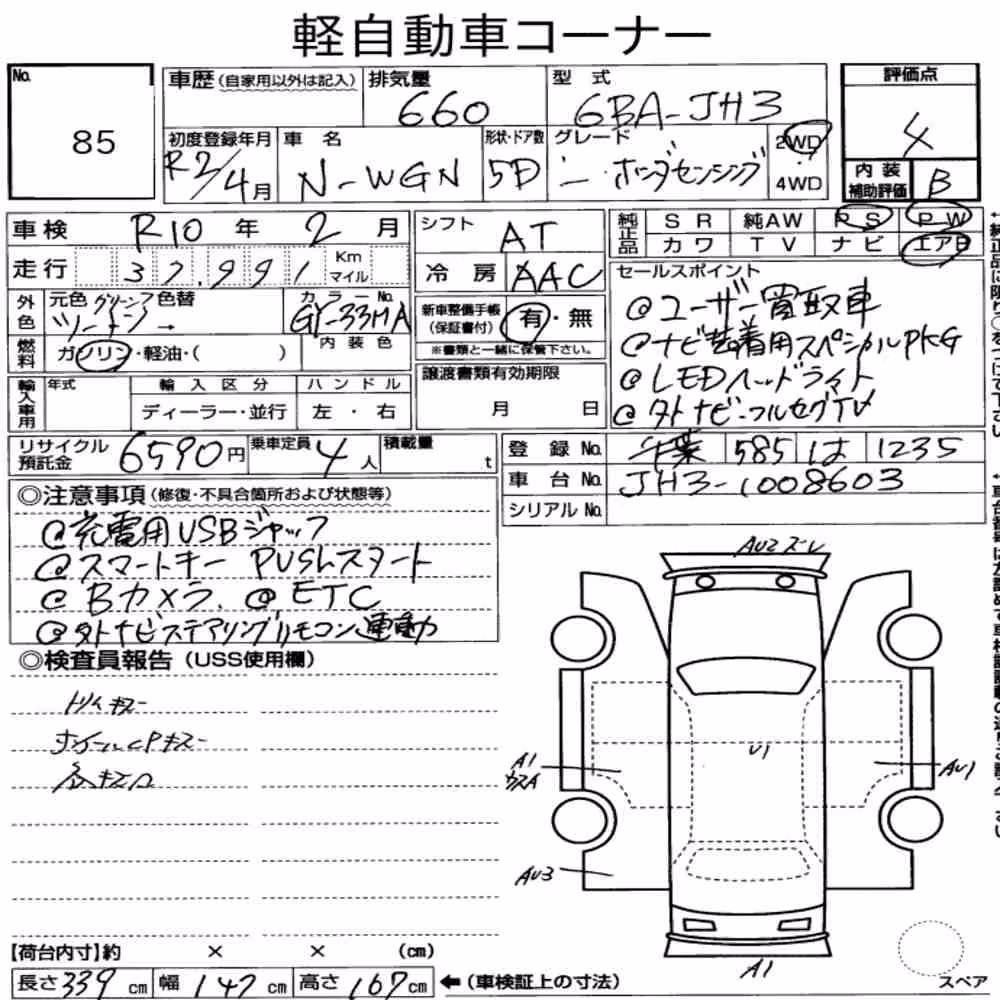 軽自動車コーナー
No. 85
車歴 (自家用以外は記入)
排気量 660
型式 6BA-JH3
評価点 4
初度登録年月 R2/4月
車名 N-WGN
形状・ドア数 5D
グレード ホンダセンシング
2WD
4WD
内装補助評価 B
車検 R10年 2月
走行 37,991 Km マイル
シフト AT
冷房 AAC
純正品 SR 純AW PS PW
カワ TV ナビ エアB
外色 元色 グリーン 色替
ツートン →
カラーNo. GY-33MA
内装色
燃料 ガソリン・軽油・( )
新車整備手帳(保証書付) 有・無
※書類と一緒に保管下さい。
セールスポイント
@ユーザー買取車
@ナビ装着用スペシャルPKG
@LEDヘッドライト
@外ナビ-フルセグTV
輸入車用 年式 輸入区分 ハンドル
ディーラー・並行 左・右
譲渡書類有効期限
月 日
リサイクル預託金 6590円
乗車定員 4人
積載量 t
登録No. 千葉 585 は 1235
車台No. JH3-1008603
シリアルNo.
◎注意事項 (修復・不具合箇所および状態等)
@充電用USBジャック
@スマートキー PUSHスタート
@Bカメラ. @ETC
@外ナビステアリングリモコン連動
◎検査員報告 (USS使用欄)
AU2 ズレ
U1
A1
AU1
AU3
A1
【荷台内寸】約 × × (cm)
長さ 339cm 幅 147cm 高さ 167cm ←(車検証上の寸法)
スペア